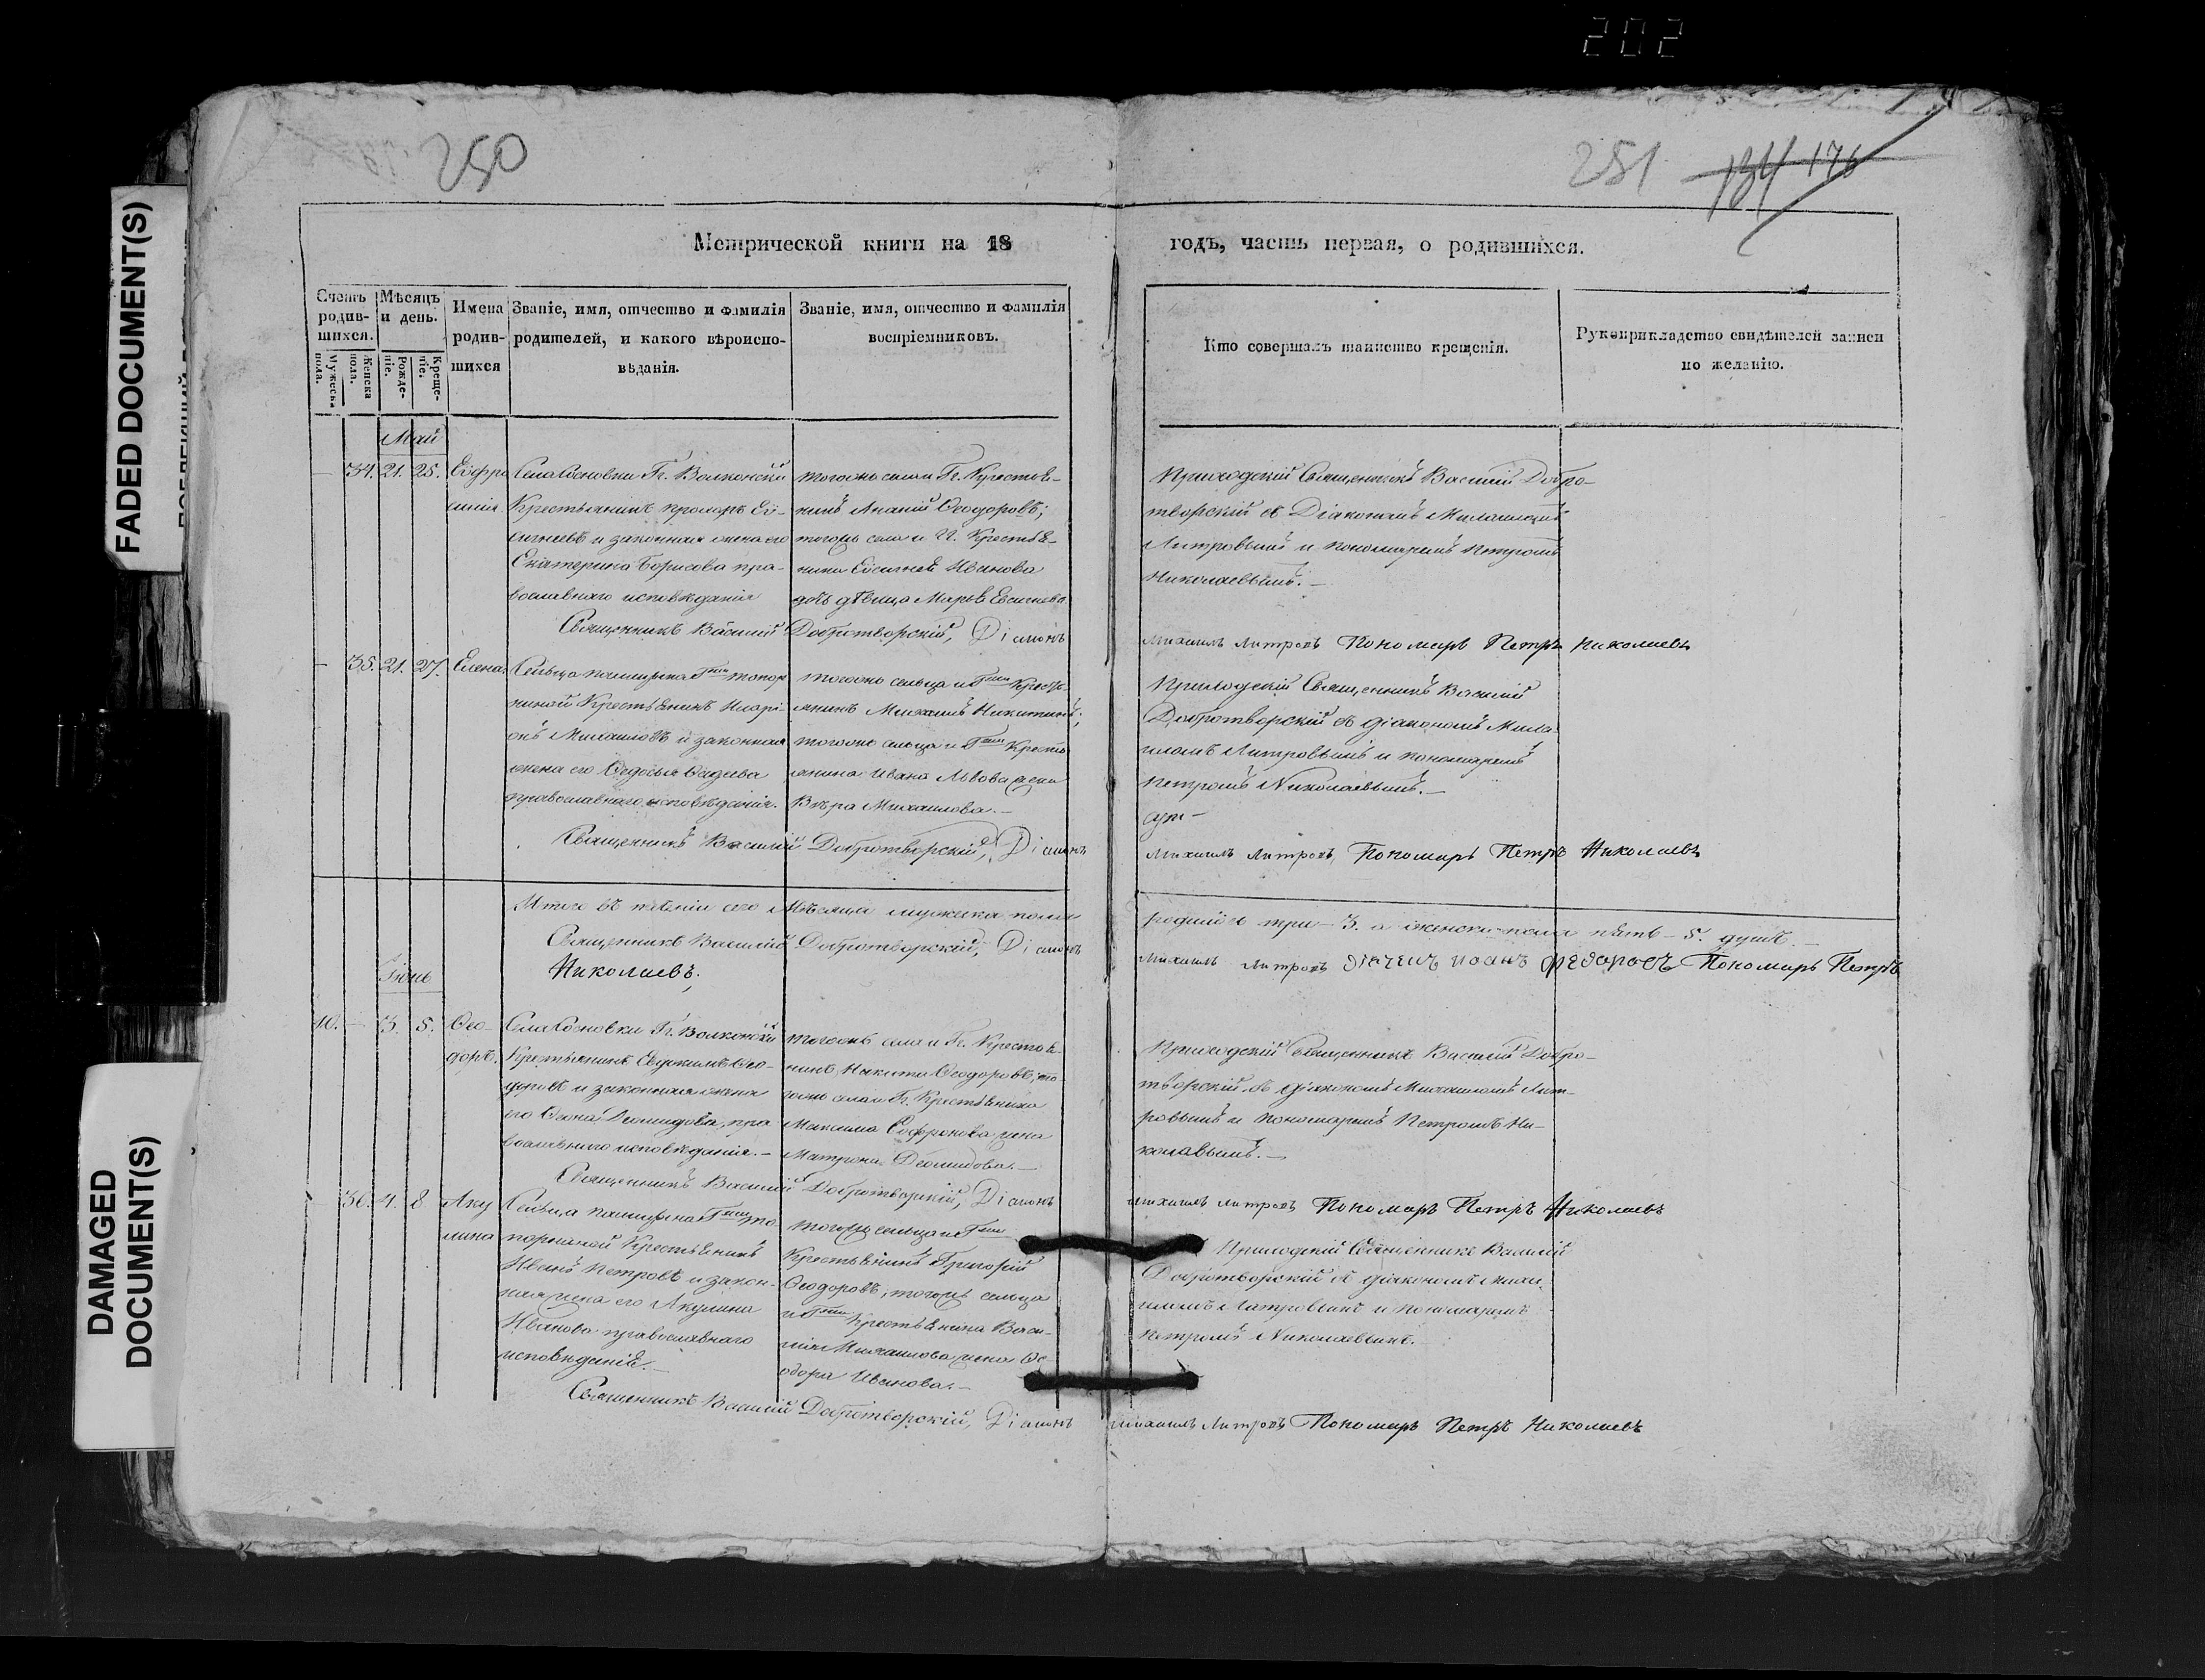 202
FADED DOCUMENT(S)
DAMAGED
DOCUMENT(S)
250
251
134 176
Метрической книги на 18
годъ, часть первая, о родившихся.
Счетъ родив-шихся.
Мужеска пола.
Женска пола.
Мѣсяцъ и день.
Рожде-ніе.
Креще-ніе.
Имена родив-шихся
Званіе, имя, отчество и фамилія
родителей, и какого вѣроиспо-
вѣданія.
Званіе, имя, отчество и фамилія
воспріемниковъ.
Кто совершалъ таинство крещенія.
Рукоприкладство свидѣтелей записи
по желанію.
Май
— 34. 21. 25. Евфро
синія
Села Сосновки Гг. Волконскій
Крестьянинъ Прохоръ Ев-
сигнеевъ и законная жена его
Екатерина Борисова пра-
вославнаго исповѣданія
тогожъ села и Гг. Крестья-
нинъ Ананій Ѳеодоровъ;
тогожъ села и Гг. Крестья-
нина Евсигнея Иванова
дочь дѣвица Марья Евсигнева.
Приходскій Священникъ Василій Добро-
творскій съ Діакономъ Михаиломъ
Митровымъ и пономаремъ Петромъ
Николаевымъ. —
Священникъ Василій Добротворскій, Діаконъ
Михаилъ Митровъ Пономарь Петръ Николаевъ
— 35. 21. 27. Елена.
Крестьянинъ Иларі-
онъ Михайловъ и законная
жена его Ѳедосья Ѳадеева
православнаго исповѣданія.
тогожъ сельца и Гжи Кресть-
янинъ Михаилъ Никитинъ;
тогожъ сельца и Гжи Кресть
янина Ивана Львова жена
Вѣра Михаилова. —
Приходскій Священникъ Василій
Добротворскій съ діакономъ Миха
иломъ Митровымъ и пономаремъ
Петромъ Николаевымъ. —
Священникъ Василій Добротворскій, Діаконъ
Михаилъ Митровъ, Пономарь Петръ Николаевъ
Итого въ теченіи сего Мѣсяца мужеска пола
родшихся три — 3. а женска пола пять — 5. душъ. —
Священникъ Василій Добротворскій, Діаконъ
Михаилъ Митровъ Дiачекъ Иоанъ Федоровъ Пономарь Петръ
Николаевъ.
Іюнь
10. — 3. 5. Ѳео-
доръ.
Села Сосновки Гг. Волконскій
Крестьянинъ Евдокимъ Ѳео-
доровъ и законная жена
его Ѳекла Демидова, пра
вославнаго исповѣданія. —
тогожъ села и Гг. Крестья-
нинъ Никита Ѳеодоровъ; то
гожъ села и Гг. Крестьянина
Максима Софронова жена
Матрона Диомидова. —
Приходскій Священникъ Василій Добро-
творскій съ діакономъ Михаиломъ Мит-
ровымъ и пономаремъ Петромъ Ни-
колаевымъ. —
Священникъ Василій Добротворскій, Діаконъ
Михаилъ Митровъ Пономарь Петръ Николаевъ
— 36. 4. 8 Аку
лина
Крестьянинъ
Иванъ Петровъ и закон-
ная жена его Акулина
Иванова православнаго
исповѣданія. —
тогожъ сельца и Гжи
Крестьянинъ Григорій
Ѳеодоровъ, тогожъ сельца
и Гжи Крестьянина Васи-
лія Михаилова жена Ѳе
одора Иванова. —
Приходскій Священникъ Василій
Добротворскій съ діакономъ Миха
иломъ Митровымъ и пономаремъ
Петромъ Николаевымъ. —
Священникъ Василій Добротворскій, Діаконъ
Михаилъ Митровъ Пономарь Петръ Николаевъ